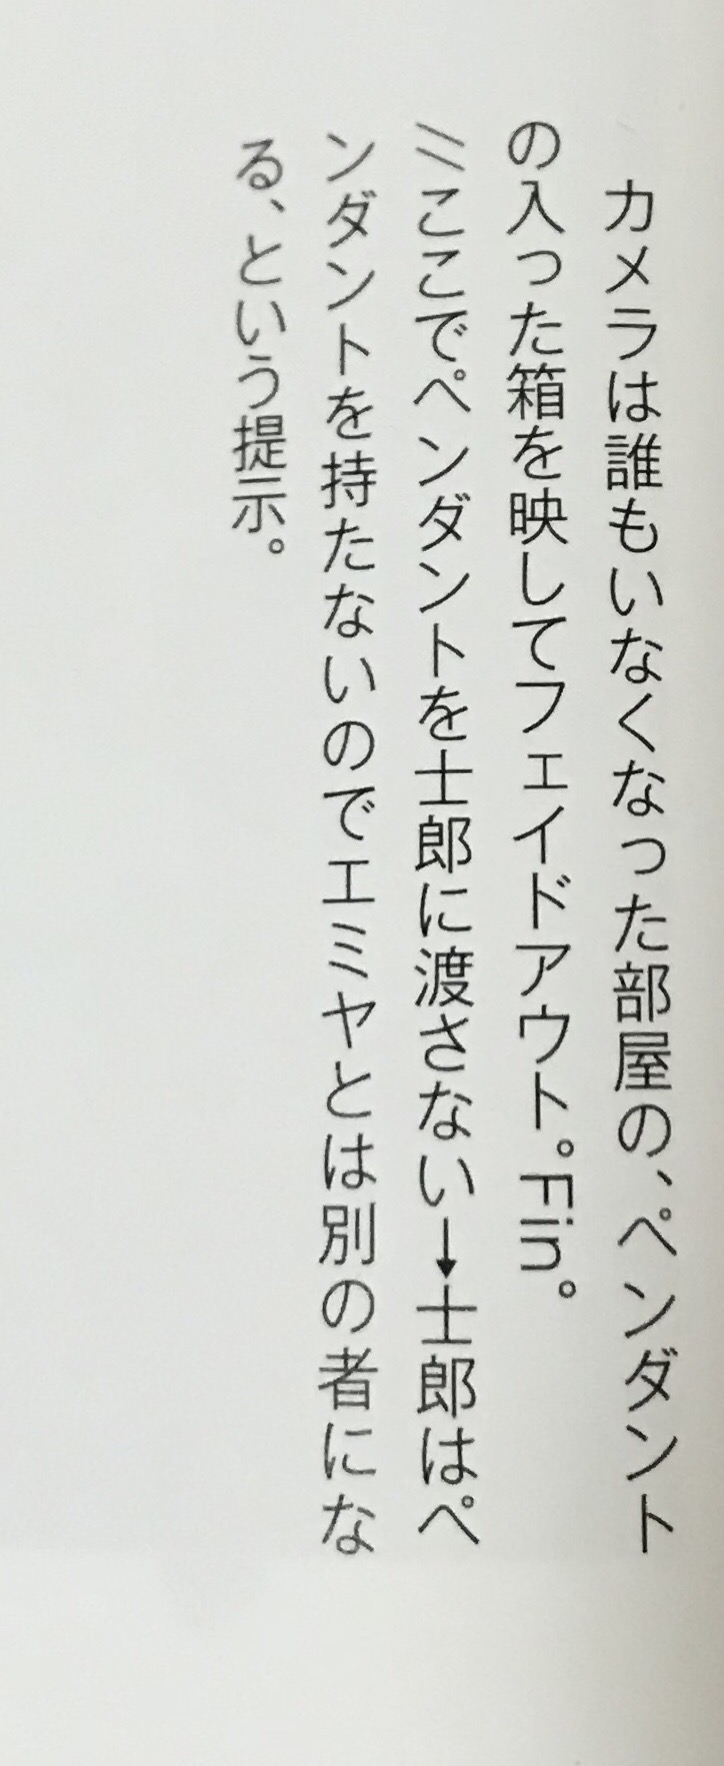 カメラは誰もいなくなった部屋の、ペンダント
の入った箱を映してフェイドアウト。Fin。
〃ここでペンダントを士郎に渡さない→士郎はペ
ンダントを持たないのでエミヤとは別の者にな
る、という提示。